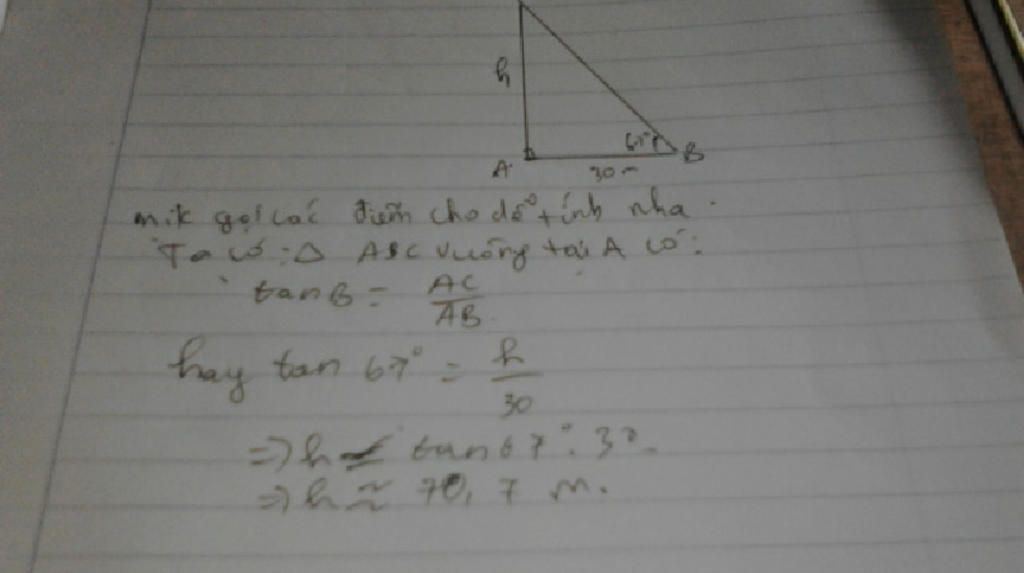 h
67°
A
B
30m
mik gọi các điểm cho dễ tính nha.
Ta có: Δ ABC vuông tại A có:
tanB = AC/AB
hay tan 67° = h/30
=> h = tan67°. 30
=> h ≈ 70,7 m.